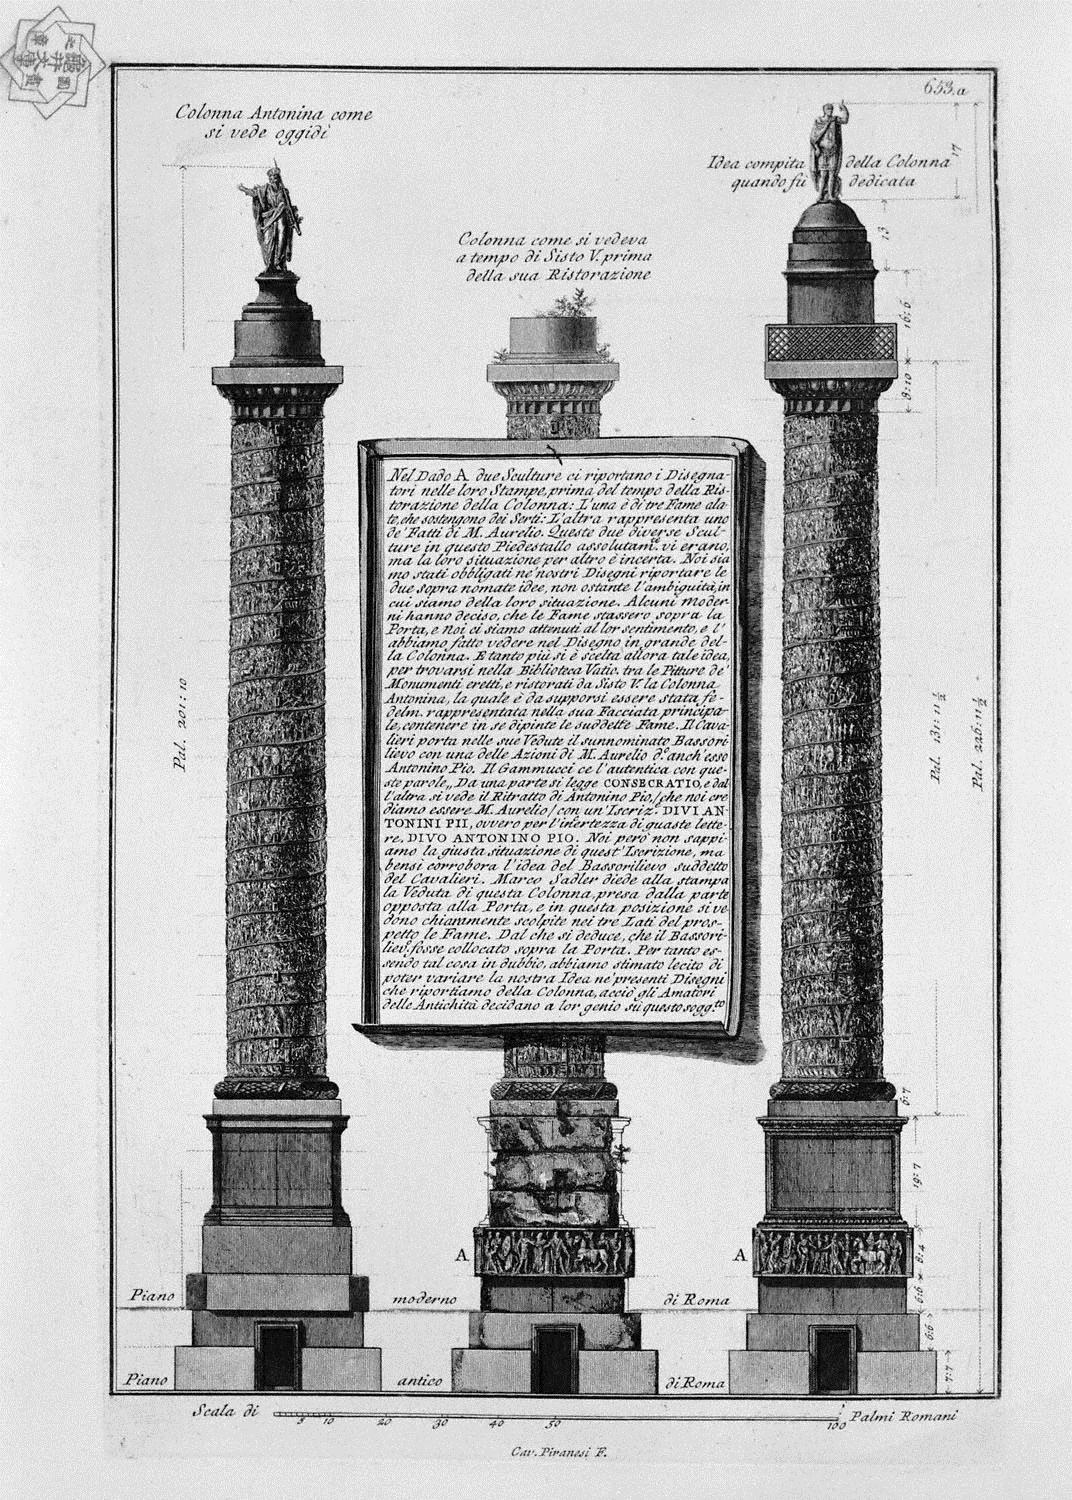 653.a
Colonna Antonina come
si vede oggidì
Idea compita della Colonna
quando fù dedicata
Colonna come si vedeva
a tempo di Sisto V. prima
della sua Ristorazione
17
13
16:6
8:10
Nel Dado A due Sculture ci riportano i Disegna-
tori nelle loro Stampe, prima del tempo della Ris-
torazione della Colonna: L'una è di tre Fame ala-
te, che sostengono dei Serti: L'altra rappresenta uno
de' Fatti di M. Aurelio. Queste due diverse Scul-
ture in questo Piedestallo assolutam.te vi erano,
ma la loro situazione per altro è incerta. Noi sia
mo stati obbligati ne' nostri Disegni riportare le
due sopra nomate idee, non ostante l'ambiguità, in
cui siamo della loro situazione. Alcuni moder-
ni hanno deciso, che le Fame stassero sopra la
Porta, e noi ci siamo attenuti al lor sentimento, e l'
abbiamo fatto vedere nel Disegno in grande del-
la Colonna. E tanto più si è scelta allora tale idea,
per trovarsi nella Biblioteca Vatic. tra le Pitture de'
Monumenti eretti, e ristorati da Sisto V. la Colonna
Antonina, la quale è da supporsi essere stata fe-
delm. rappresentata nella sua Facciata principa-
le, contenere in se dipinte le suddette Fame. Il Cava-
lieri porta nelle sue Vedute il sunnominato Bassori-
lievo con una delle Azioni di M. Aurelio d.o anch'esso
Antonino Pio. Il Gammucci ce l'autentica con que-
ste parole,, Da una parte si legge CONSECRATIO, e dal
l'altra si vede il Ritratto di Antonino Pio, (che noi cre
diamo essere M. Aurelio) con un' Iscriz.e DIVI AN-
TONINI PII, ovvero per l'incertezza di quaste lette-
re, DIVO ANTONINO PIO. Noi però non sappi-
amo la giusta situazione di quest' Iscrizione, ma
bensì corrobora l'idea del Bassorilievo suddetto
del Cavalieri. Marco Sadler diede alla stampa
la Veduta di questa Colonna, presa dalla parte
opposta alla Porta, e in questa posizione si ve
dono chiaramente scolpite nei tre Lati del pros-
petto le Fame. Dal che si deduce, che il Bassori-
liev. fosse collocato sopra la Porta. Per tanto es-
sendo tal cosa in dubbio, abbiamo stimato lecito di
poter variare la nostra Idea ne' presenti Disegni
che riportiamo della Colonna, acciò gli Amatori
delle Antichità decidano a lor genio sù questo sogg.to
Pal. 201:10
Pal. 131:11½
Pal. 226:11½
6:7
19:7
A
A
8:4
6:6
Piano moderno di Roma
6:6
7:7
Piano antico di Roma
Scala di 5 10 20 30 40 50 100 Palmi Romani
Cav. Piranesi F.